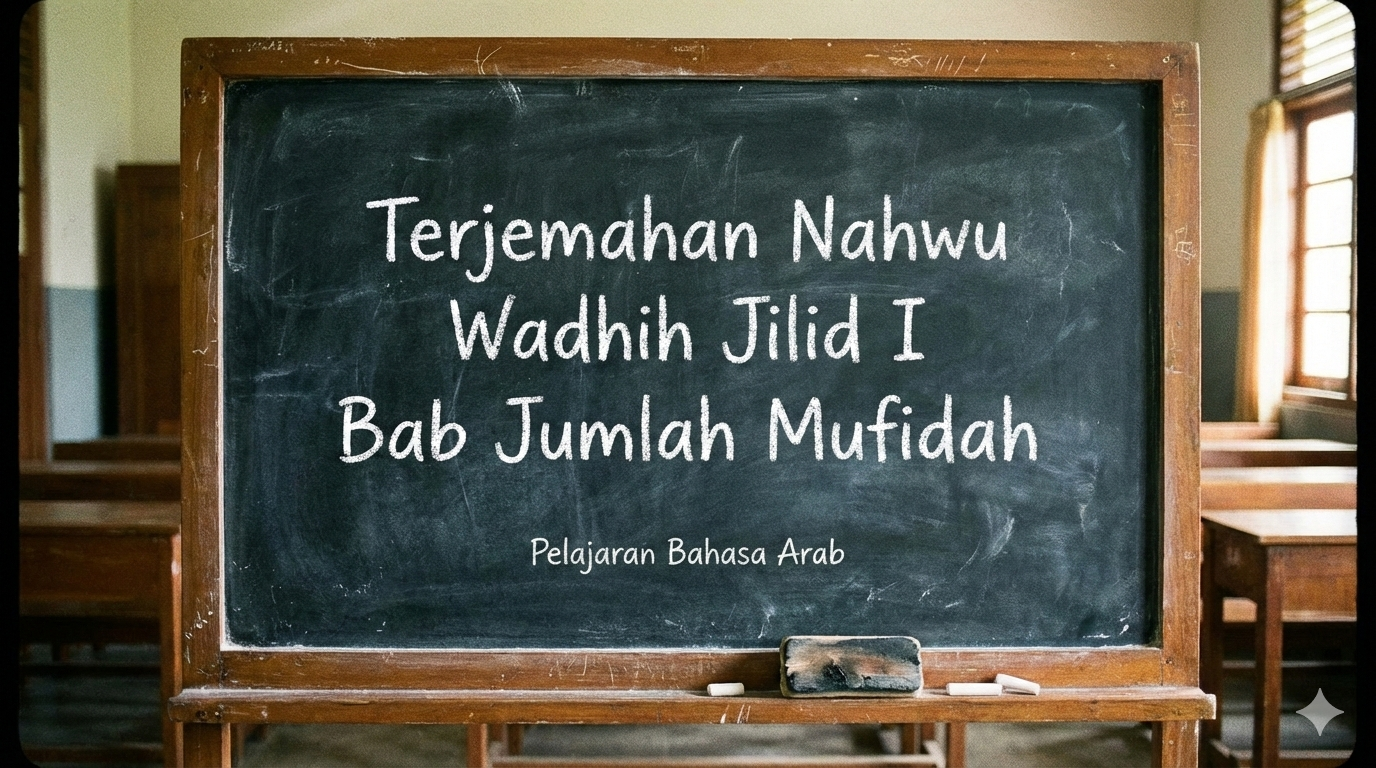 Terjemahan Nahwu
Wadhih Jilid I
Bab Jumlah Mufidah
Pelajaran Bahasa Arab